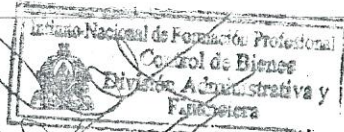 Instituto Nacional de Formación Profesional
Control de Bienes
División Administrativa y
Financiera